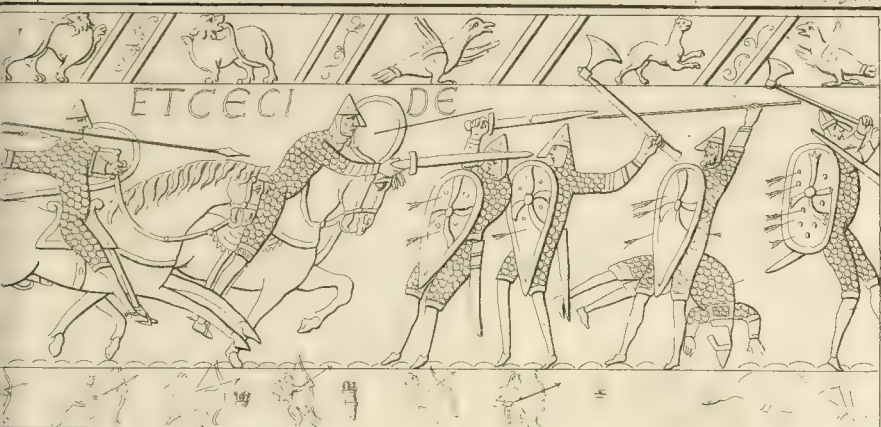 ET CECI DE